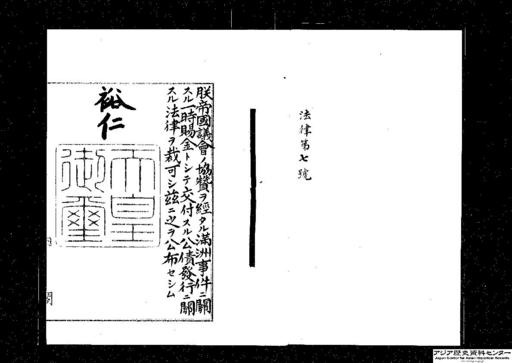 法律第七號
朕帝國議會ノ協贊ヲ經タル滿洲事件ニ關
スル一時賜金トシテ交付スル公債發行ニ關
スル法律ヲ裁可シ茲ニ之ヲ公布セシム
裕仁
天皇
御璽
閣
アジア歴史資料センター
Japan Center for Asian Historical Records